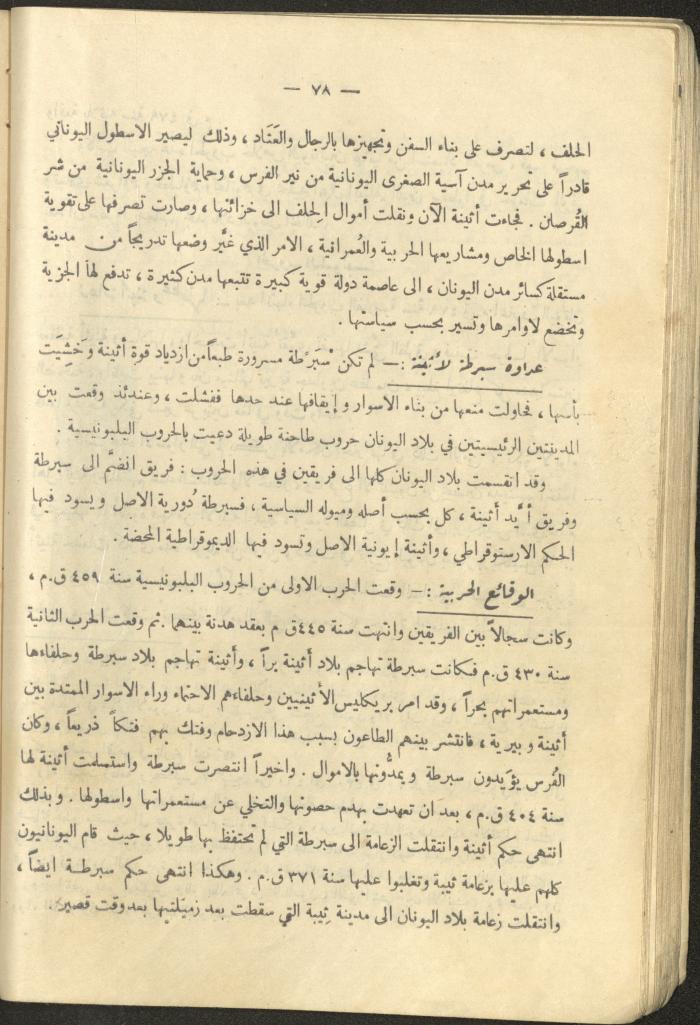 — ٧٨ —
الحلف ، لتصرف على بناء السفن وتجهيزها بالرجال والعَتَاد ، وذلك ليصير الاسطول اليوناني
قادراً على تحرير مدن آسية الصغرى اليونانية من نير الفرس ، وحماية الجزر اليونانية من شر
القُرصان . فجاءت أثينة الآن ونقلت أموال الحلف الى خزائنها ، وصارت تصرفها على تقوية
اسطولها الخاص ومشاريعها الحربية والعُمرانية ، الامر الذي غيَّر وضعها تدريجاً من مدينة
مستقلة كسائر مدن اليونان ، الى عاصمة دولة قوية كبيرة تتبعها مدن كثيرة ، تدفع لها الجزية
وتخضع لاوامرها وتسير بحسب سياستها .
عداوة سبرطة لأثينة :— لم تكن سْبَرْطة مسرورة طبعاً من ازدياد قوة أثينة وخَشِيَت
بأسها ، فحاولت منعها من بناء الاسوار وإيقافها عند حدها ففشلت ، وعندئذ وقعت بين
المدينتين الرئيسيتين في بلاد اليونان حروب طاحنة طويلة دعيت بالحروب البلبونيسية .
وقد انقسمت بلاد اليونان كلها الى فريقين في هذه الحروب : فريق انضمَّ الى سبرطة
وفريق أيَّد أثينة ، كل بحسب أصله وميوله السياسية ، فسبرطة دُورية الاصل ويسود فيها
الحكم الارستوقراطي ، وأثينة إيونية الاصل وتسود فيها الديموقراطية المحضة .
الوقائع الحربية :— وقعت الحرب الاولى من الحروب البلبونيسية سنة ٤٥٩ ق.م ،
وكانت سجالاً بين الفريقين وانتهت سنة ٤٤٥ ق م بعقد هدنة بينهما . ثم وقعت الحرب الثانية
سنة ٤٣٠ ق.م فكانت سبرطة تهاجم بلاد أثينة براً ، وأثينة تهاجم بلاد سبرطة وحلفاءها
ومستعمراتهم بحراً ، وقد امر بريكليس الأثينيين وحلفاءهم الاحتماء وراء الاسوار الممتدة بين
أثينة وبيرية ، فانتشر بينهم الطاعون بسبب هذا الازدحام وفتك بهم فتكاً ذريعاً ، وكان
الفُرس يؤيدون سبرطة ويمدُّونها بالاموال . واخيراً انتصرت سبرطة واستسلمت أثينة لها
سنة ٤٠٤ ق.م ، بعد ان تعهدت بهدم حصونها والتخلي عن مستعمراتها واسطولها . وبذلك
انتهى حكم أثينة وانتقلت الزعامة الى سبرطة التي لم تحتفظ بها طويلا ، حيث قام اليونانيون
كلهم عليها بزعامة ثيبة وتغلبوا عليها سنة ٣٧١ ق.م . وهكذا انتهى حكم سبرطة ايضاً ،
وانتقلت زعامة بلاد اليونان الى مدينة ثِيبة التي سقطت بعد زميلتيها بعد وقت قصير .